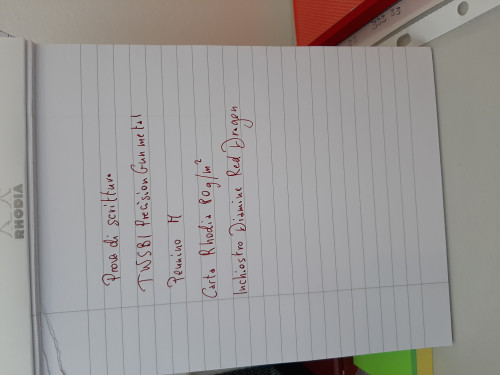 RHODIA
Prova di scrittura
TWSBI Precision Gunmetal
Pennino M
Carta Rhodia 80g/m²
Inchiostro Diamine Red Dragon